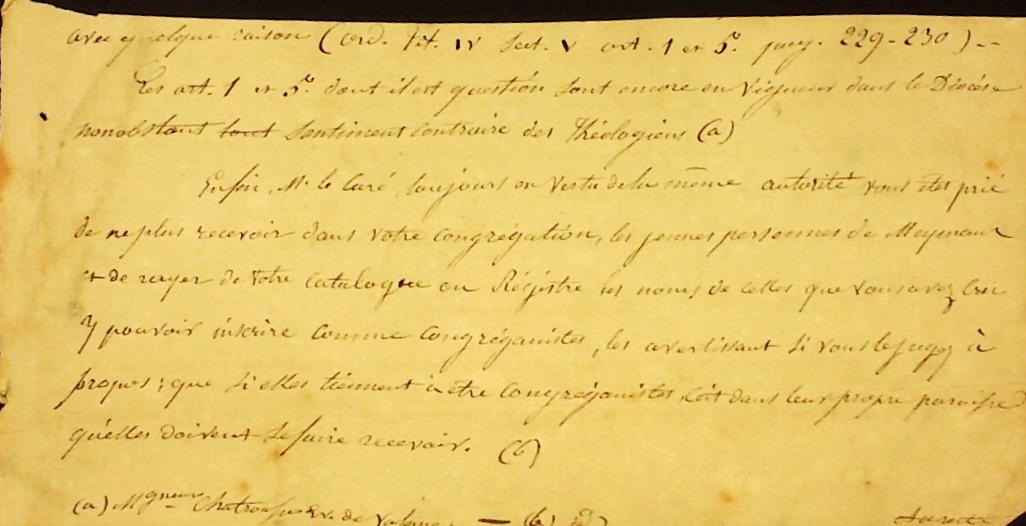 avec quelque raison (ord. tit. IV sect. V art. 1 et 5. pag. 229-230) --
Les art. 1 et 5. dont il est question sont encore en vigueur dans le Diocèse
nonobstant tout sentiment contraire des Théologiens (a)
Enfin, Mr. le Curé, toujours en vertu de la même autorité vous êtes prié
de ne plus recevoir dans votre congrégation, les jeunes personnes de Meymans
et de rayer de votre catalogue ou Régistre les noms de celles que vous avez cru
y pouvoir inscrire comme congréganistes, les avertissant si vous le jugez à
propos; que si elles tiennent à etre congréganistes, c'est dans leur propre paroisse
qu'elles doivent se faire recevoir. (b)
(a) Mgneur Chatrousse Ev. de Valence. — (b)